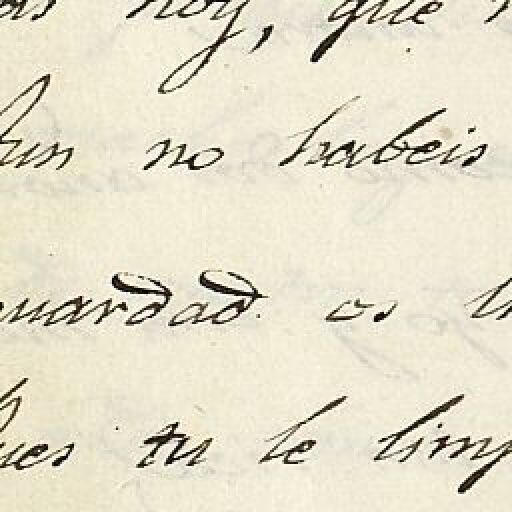 hoy, que
Aun no habeis
guardad os
Pues tu le limp